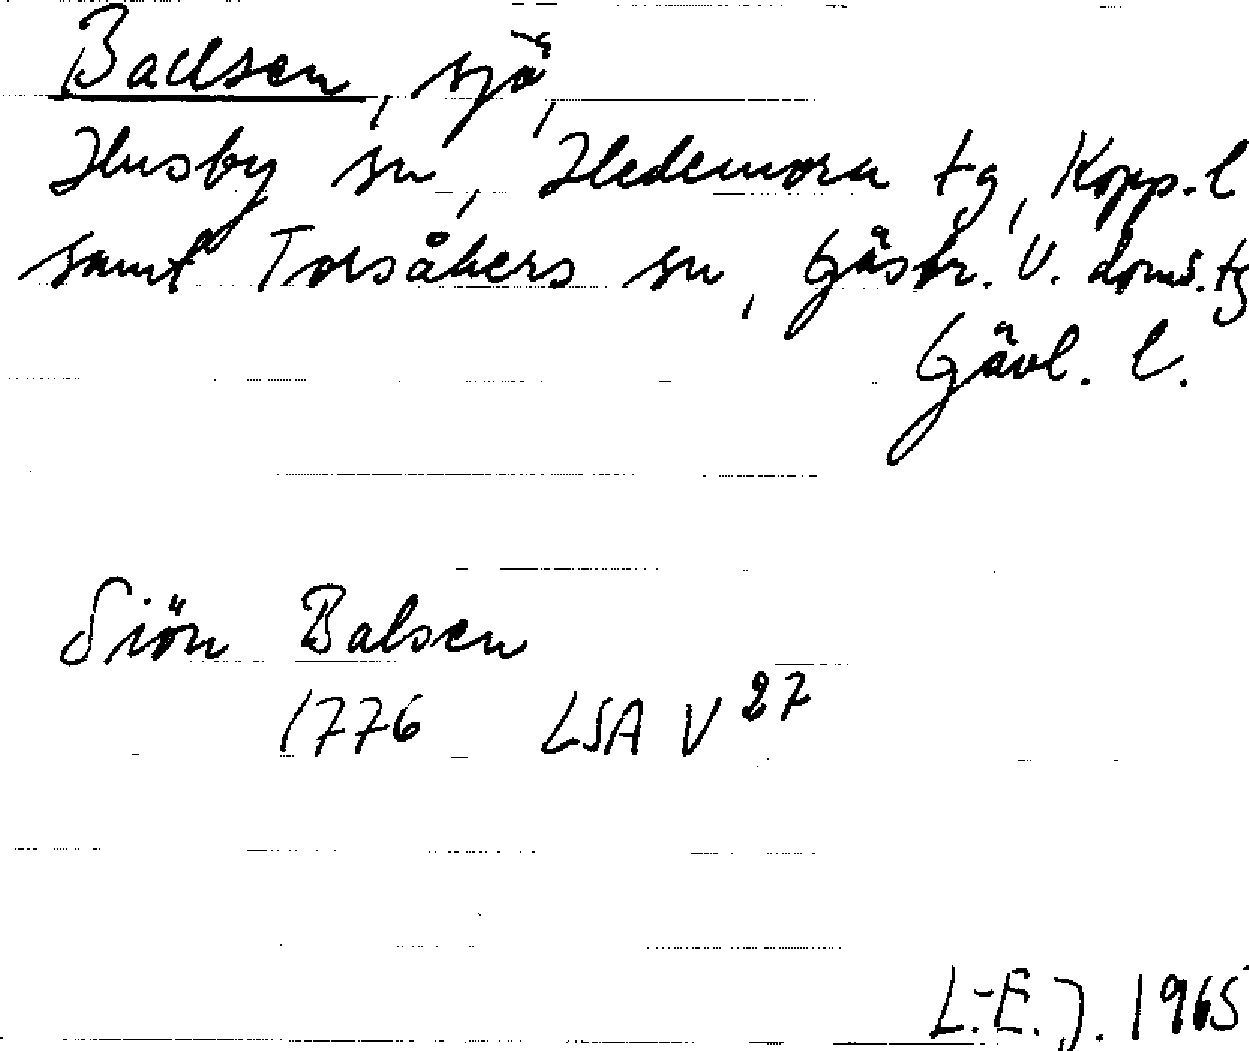 Ballsen, sjö,
Husby sn, Hedemora tg, Kopp. l
samt Torsåkers sn, Gästr. V. doms. tg
Gävl. l.
Siön Balsen
1776 LSA V 27
L.-E. J. 1965